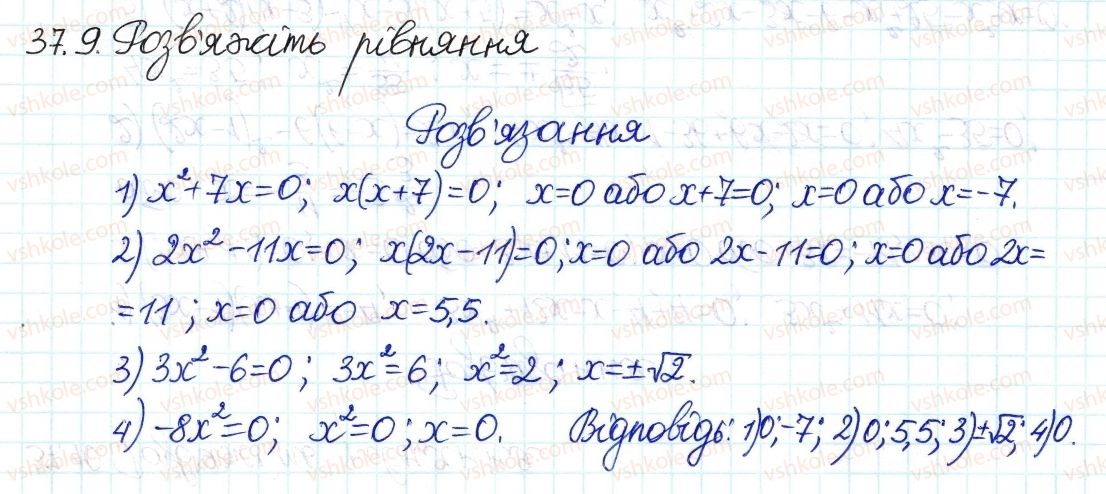 37.9. Розв'яжіть рівняння
Розв'язання
1) x²+7x=0; x(x+7)=0; x=0 або x+7=0; x=0 або x=-7.
2) 2x²-11x=0; x(2x-11)=0; x=0 або 2x-11=0; x=0 або 2x=
=11; x=0 або x=5,5.
3) 3x²-6=0; 3x²=6; x²=2; x=±√2.
4) -8x²=0; x²=0; x=0. Відповідь: 1)0;-7; 2)0;5,5; 3)±√2; 4)0.